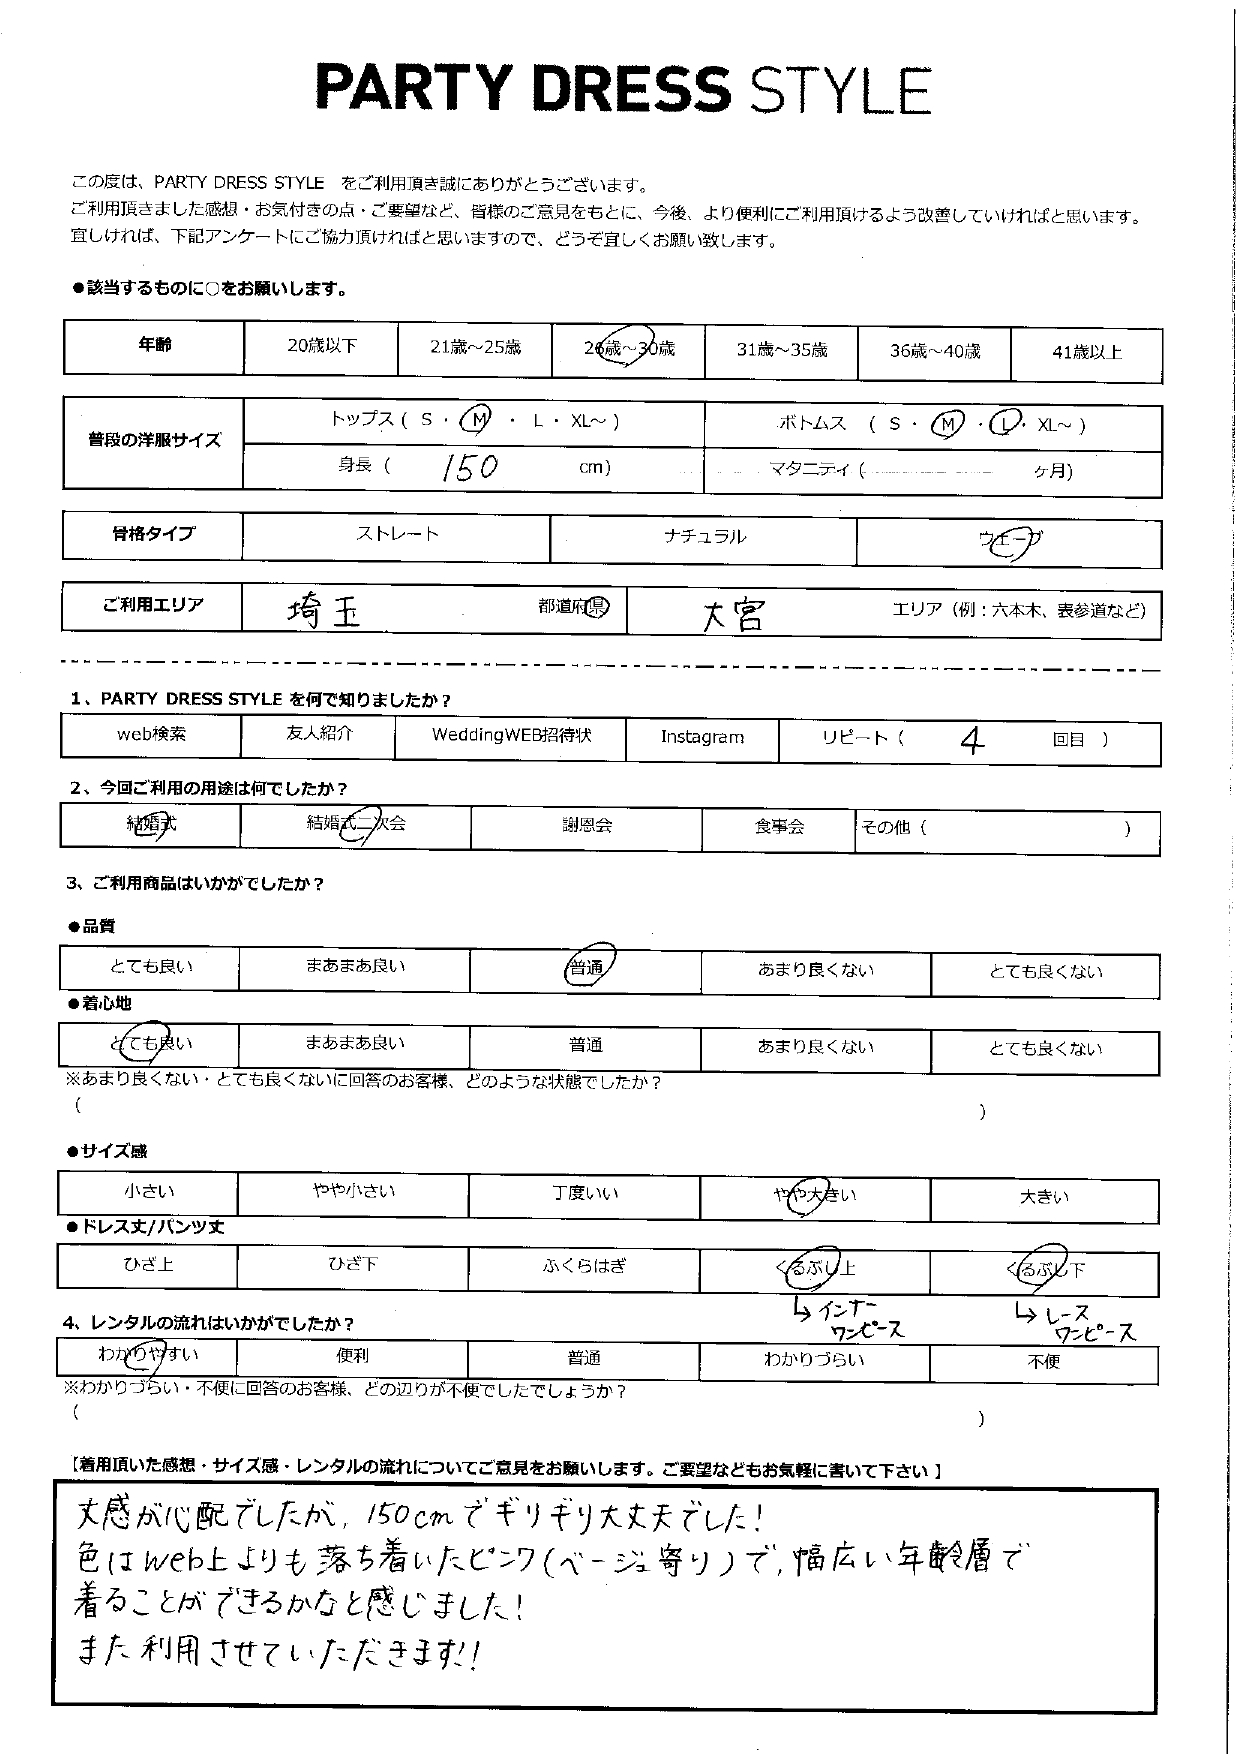 PARTY DRESS STYLE
この度は、PARTY DRESS STYLE をご利用頂き誠にありがとうございます。
ご利用頂きました感想・お気付きの点・ご要望など、皆様のご意見をもとに、今後、より便利にご利用頂けるよう改善していければと思います。
宜しければ、下記アンケートにご協力頂ければと思いますので、どうぞ宜しくお願い致します。
●該当するものに○をお願いします。
年齢 20歳以下 21歳～25歳 26歳～30歳 31歳～35歳 36歳～40歳 41歳以上
普段の洋服サイズ トップス ( S ・ M ・ L ・ XL～ ) ボトムス ( S ・ M ・ L ・ XL～ )
身長 ( 150 cm) マタニティ ( ヶ月)
骨格タイプ ストレート ナチュラル ウェーブ
ご利用エリア 埼玉 都道府県 大宮 エリア（例：六本木、表参道など）
1、PARTY DRESS STYLE を何で知りましたか？
web検索 友人紹介 WeddingWEB招待状 Instagram リピート（ 4 回目 ）
2、今回ご利用の用途は何でしたか？
結婚式 結婚式二次会 謝恩会 食事会 その他（ ）
3、ご利用商品はいかがでしたか？
●品質
とても良い まあまあ良い 普通 あまり良くない とても良くない
●着心地
とても良い まあまあ良い 普通 あまり良くない とても良くない
※あまり良くない・とても良くないに回答のお客様、どのような状態でしたか？
（ ）
●サイズ感
小さい やや小さい 丁度いい やや大きい 大きい
●ドレス丈/パンツ丈
ひざ上 ひざ下 ふくらはぎ くるぶし上 くるぶし下
↳インナーワンピース ↳レースワンピース
4、レンタルの流れはいかがでしたか？
わかりやすい 便利 普通 わかりづらい 不便
※わかりづらい・不便に回答のお客様、どの辺りが不便でしたでしょうか？
（ ）
【着用頂いた感想・サイズ感・レンタルの流れについてご意見をお願いします。ご要望などもお気軽に書いて下さい】
丈感が心配でしたが，150cmでギリギリ大丈夫でした！
色はweb上よりも落ち着いたピンク(ベージュ寄り)で，幅広い年齢層で
着ることができるかなと感じました！
また利用させていただきます!!